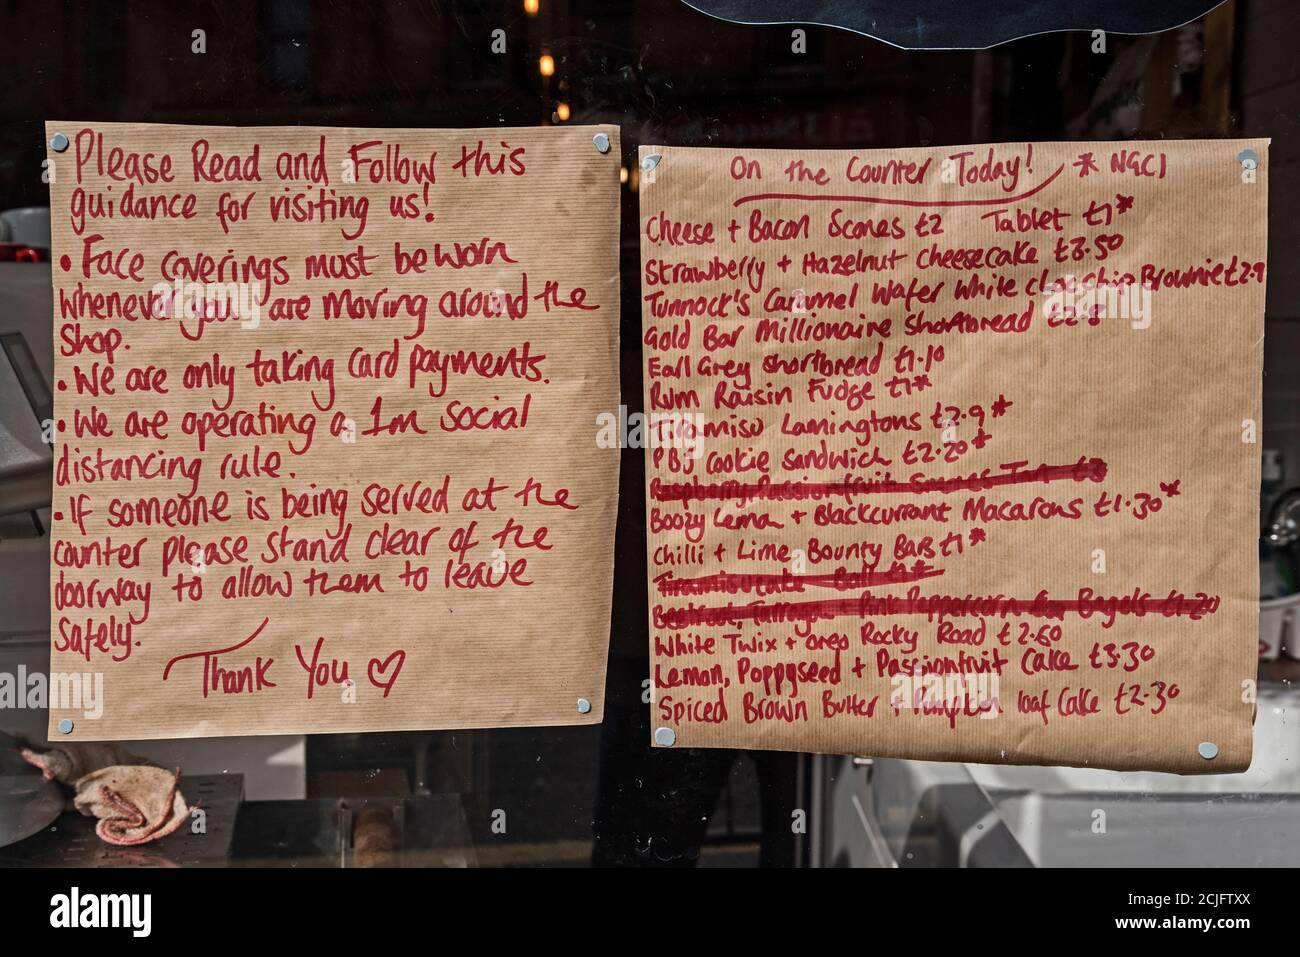 Please Read and Follow this
guidance for visiting us!
• Face coverings must be worn
whenever you are moving around the
shop.
• We are only taking card payments.
• We are operating a 1m social
distancing rule.
• If someone is being served at the
counter please stand clear of the
doorway to allow them to leave
safely.
Thank You ♡
On the Counter Today! * NGCI
Cheese + Bacon Scones £2 Tablet £1*
Strawberry + Hazelnut Cheesecake £3.50
Tunnock's Caramel Wafer White choc chip Brownie £2.9
Gold Bar Millionaire Shortbread £2.8
Earl Grey shortbread £1.10
Rum Raisin Fudge £1*
Tiramisu Lamingtons £2.9*
PBJ Cookie Sandwich £2.20*
Raspberry, Passionfruit £3
Boozy Lemon + Blackcurrant Macarons £1.30*
Chilli + Lime Bounty Bars £1*
Beetroot, Tarragon + Pink Peppercorn Bagels £1.20
White Twix + Oreo Rocky Road £2.60
Lemon, Poppyseed + Passionfruit Cake £3.30
Spiced Brown Butter + Pumpkin loaf Cake £2.30
alamy
Image ID: 2CJFTXX
www.alamy.com